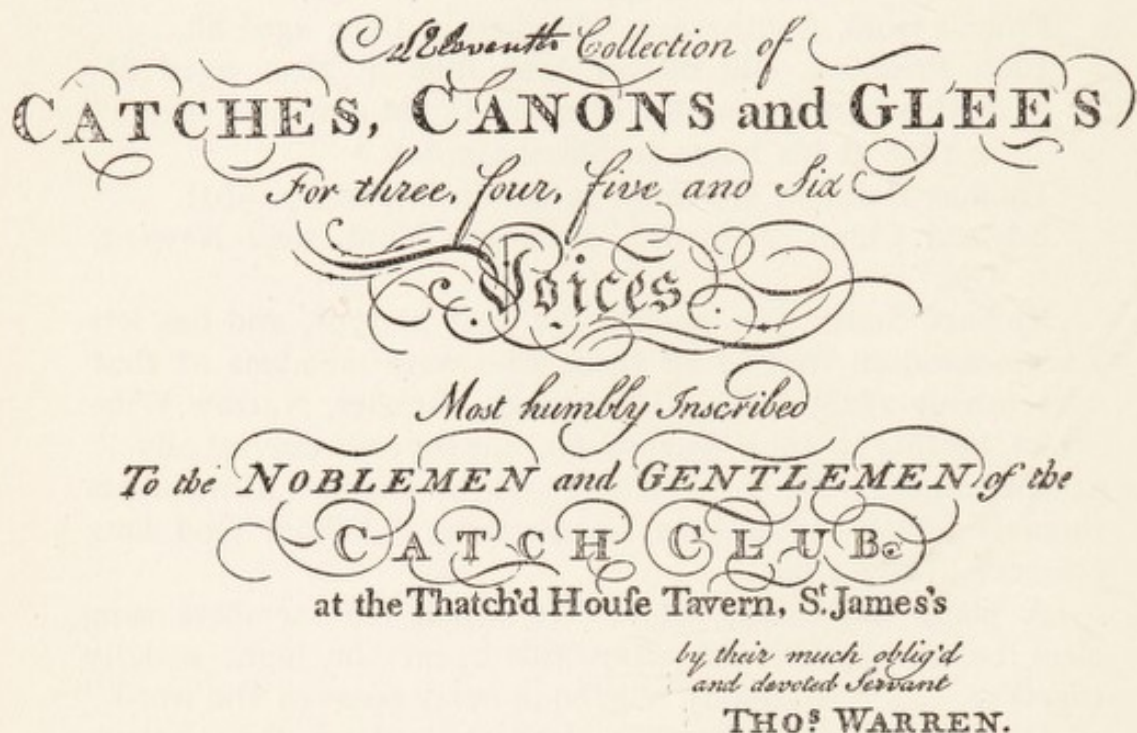 Eleventh Collection of
CATCHES, CANONS and GLEES
For three, four, five and Six
Voices
Most humbly Inscribed
To the NOBLEMEN and GENTLEMEN of the
CATCH CLUB
at the Thatch'd Houſe Tavern, St. James's
by their much oblig'd
and devoted Servant
THOs. WARREN.